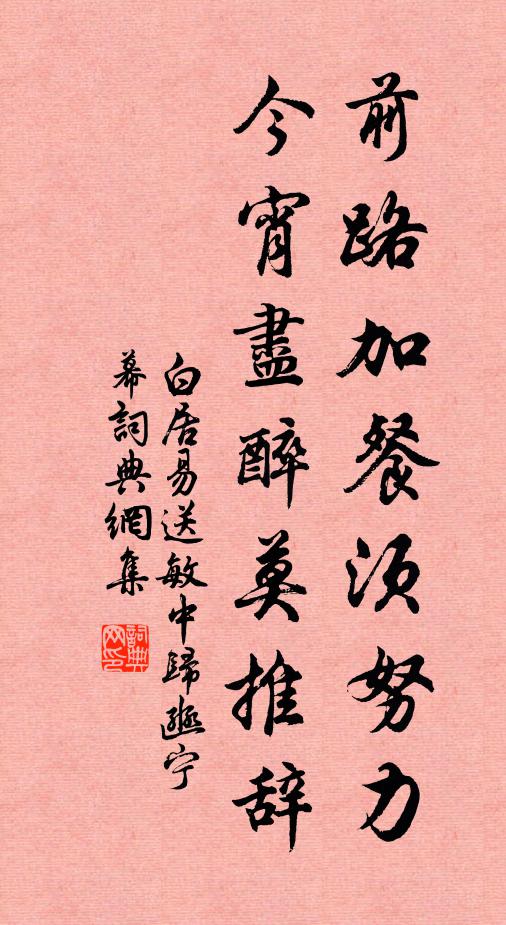 前路加餐须努力
今宵盡醉莫推辞
白居易送敏中歸豳宁
幕詞典網集
詞典網印